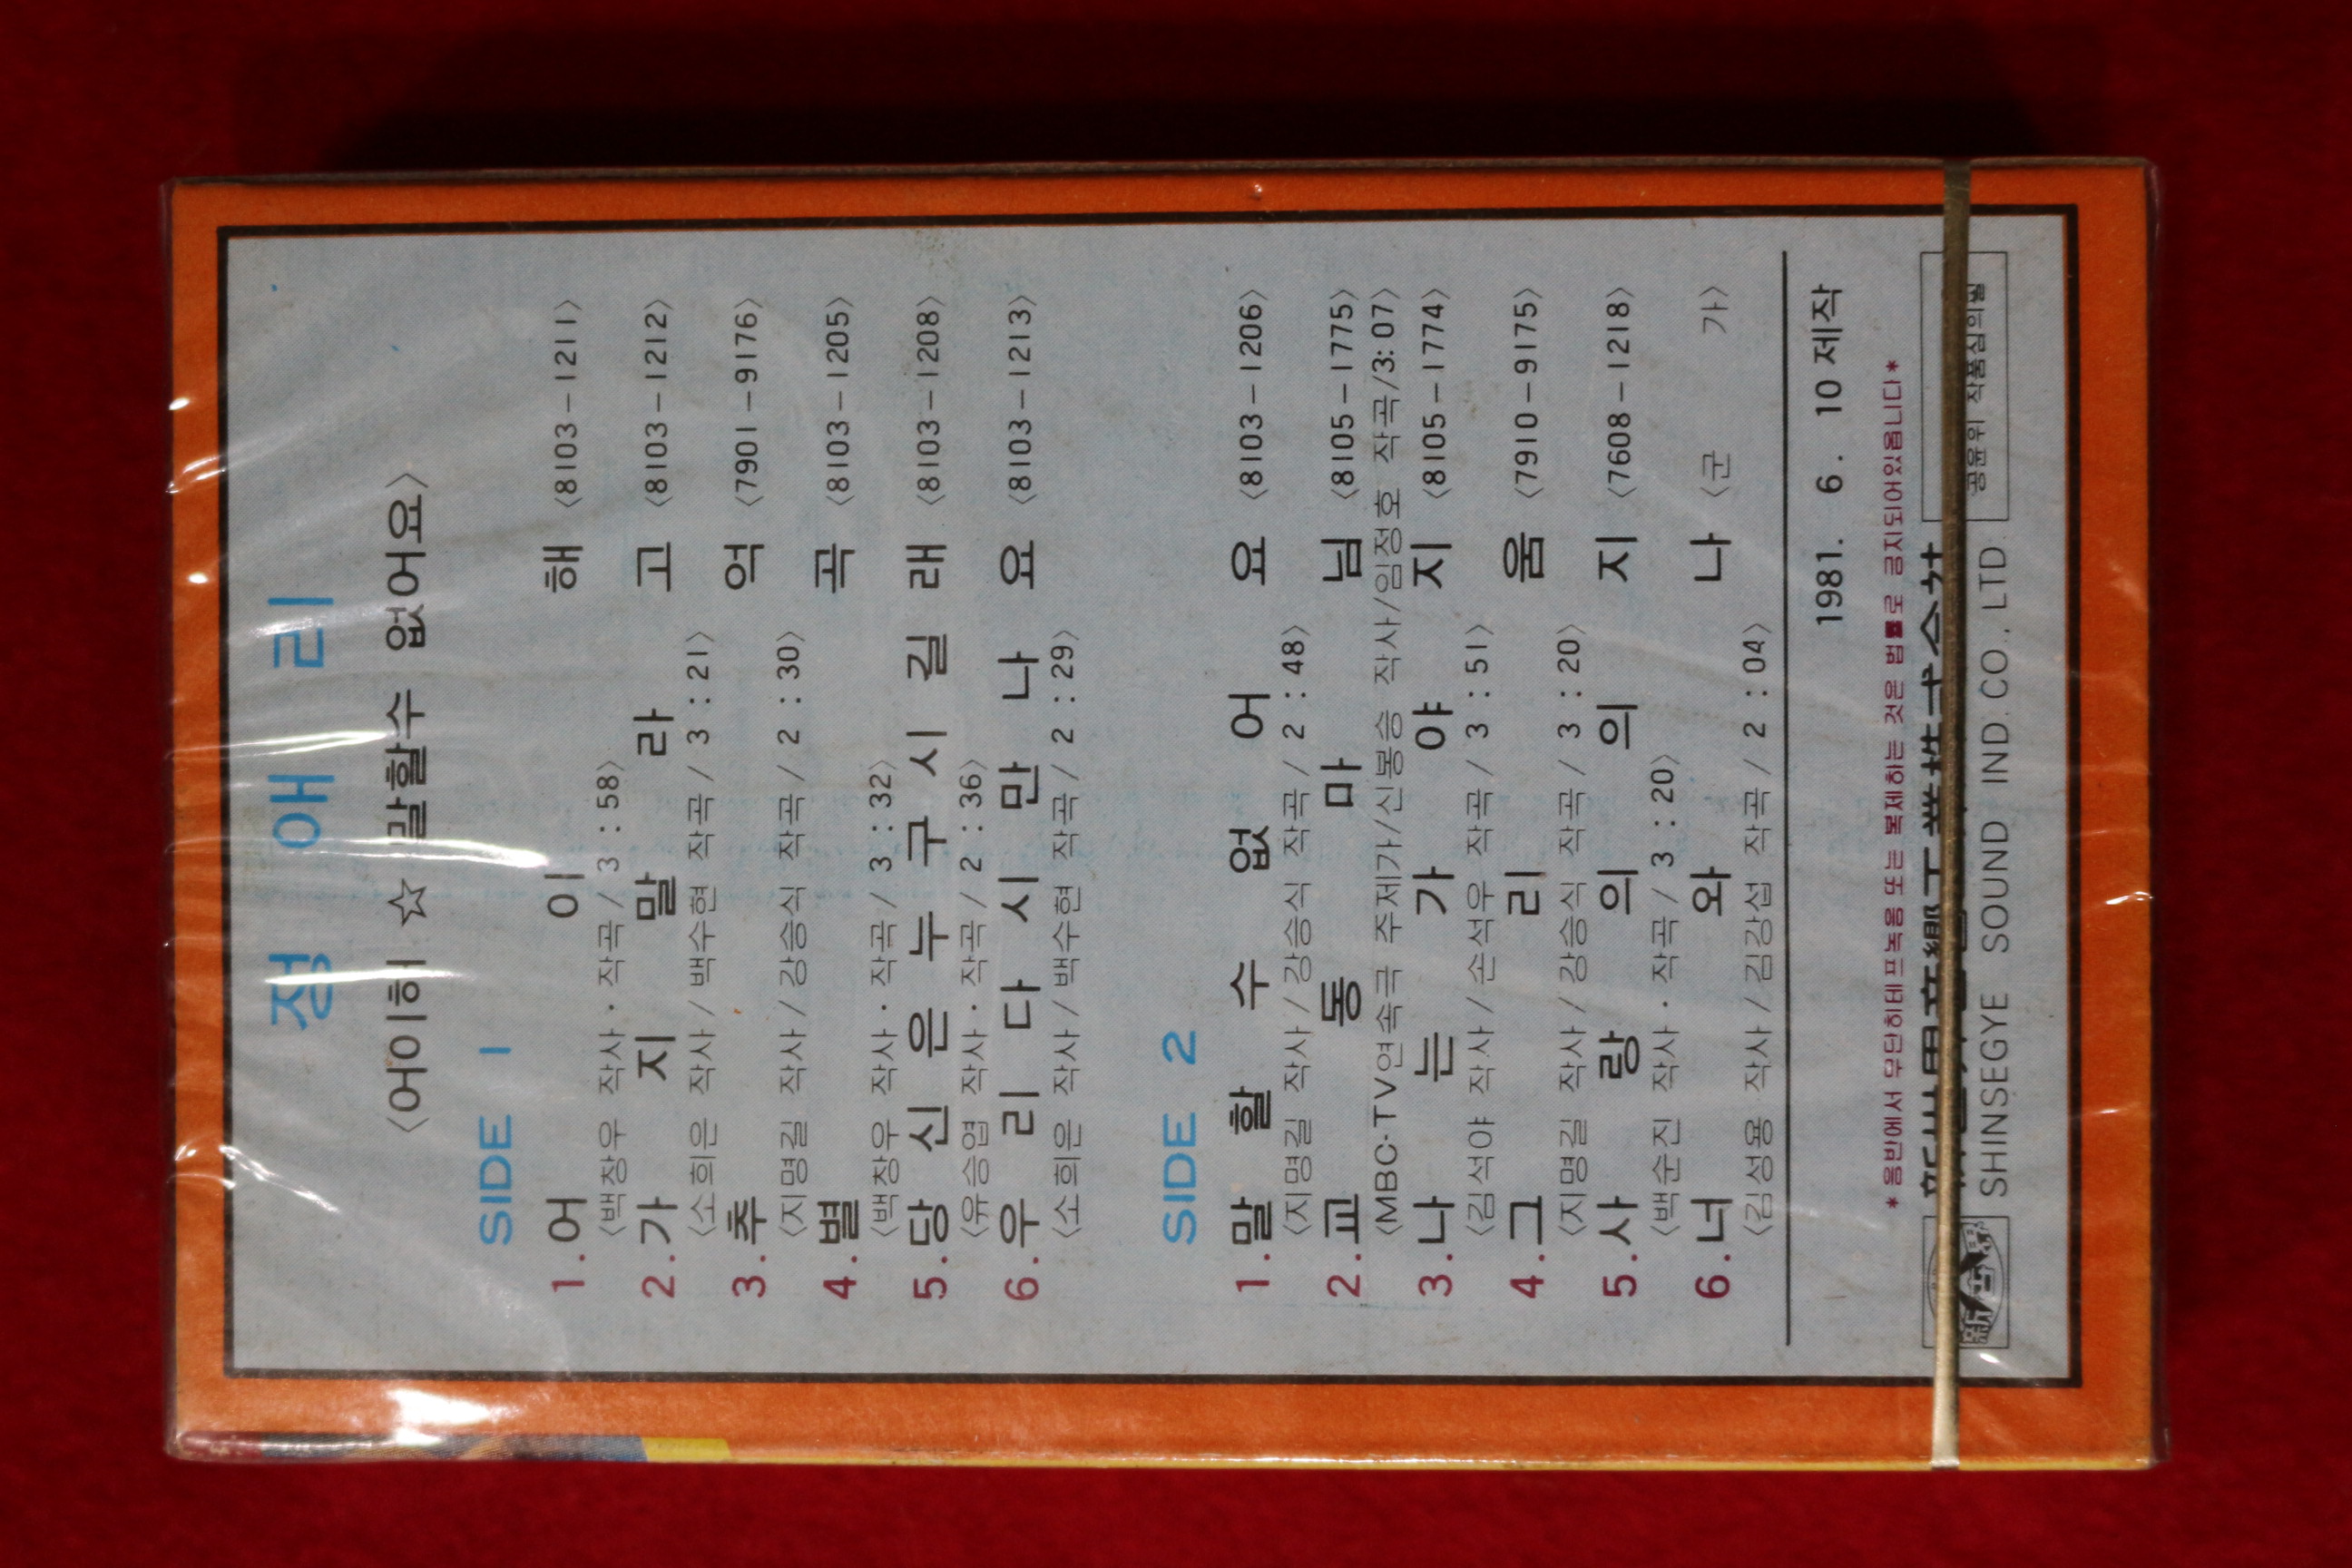 정 애 리
〈어이해 ☆ 말할수 없어요〉
SIDE 1
1. 어 이 해 〈8103－1211〉
〈백창우 작사·작곡 / 3 : 58〉
2. 가 지 말 라 고 〈8103－1212〉
〈소희은 작사 / 백수현 작곡 / 3 : 21〉
3. 추 억 〈7901－9176〉
〈지명길 작사 / 강승식 작곡 / 2 : 30〉
4. 별 곡 〈8103－1205〉
〈백창우 작사·작곡 / 3 : 32〉
5. 당 신 은 누 구 시 길 래 〈8103－1208〉
〈유승엽 작사·작곡 / 2 : 36〉
6. 우 리 다 시 만 나 요 〈8103－1213〉
〈소희은 작사 / 백수현 작곡 / 2 : 29〉
SIDE 2
1. 말 할 수 없 어 요 〈8103－1206〉
〈지명길 작사 / 강승식 작곡 / 2 : 48〉
2. 교 동 마 님 〈8105－1775〉
〈MBC·TV연속극 주제가/신봉승 작사/임정호 작곡/3: 07〉
3. 나 는 가 야 지 〈8105－1774〉
〈김석야 작사 / 손석우 작곡 / 3 : 51〉
4. 그 리 움 〈7910－9175〉
〈지명길 작사 / 강승식 작곡 / 3 : 20〉
5. 사 랑 의 의 지 〈7608－1218〉
〈백순진 작사·작곡 / 3 : 20〉
6. 너 와 나 〈군 가〉
〈김성용 작사 / 김강섭 작곡 / 2 : 04〉
1981. 6. 10 제작
*음반에서 무단히테프녹음 또는 복제하는 것은 법률로 금지되어있읍니다*
공윤위 작품심의필
SHINSEGYE SOUND IND. CO., LTD.